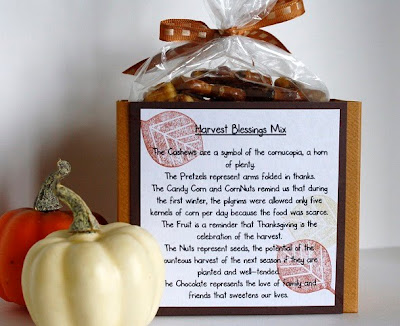 Harvest Blessings Mix
The Cashews are a symbol of the cornucopia, a horn
of plenty.
The Pretzels represent arms folded in thanks.
The Candy Corn and CornNuts remind us that during
the first winter, the pilgrims were allowed only five
kernels of corn per day because the food was scarce.
The Fruit is a reminder that Thanksgiving is the
celebration of the harvest.
The Nuts represent seeds, the potential of the
bounteous harvest of the next season if they are
planted and well-tended.
The Chocolate represents the love of family and
friends that sweetens our lives.